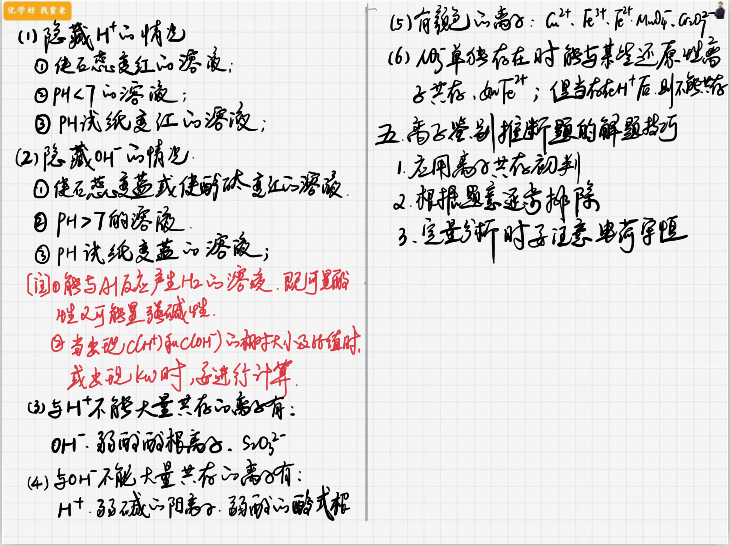 化学好 我曹老
(1) 隐藏H⁺的情况
①使石蕊变红的溶液;
②PH<7的溶液;
③PH试纸变红的溶液;
(2) 隐藏OH⁻的情况
①使石蕊变蓝或使酚酞变红的溶液.
②PH>7的溶液.
③PH试纸变蓝的溶液;
[注]①能与Al反应产生H₂的溶液.既可呈酸
性又可能呈强碱性.
②当出现C(H⁺)和C(OH⁻)的相对大小及比值时,
或出现Kw时,要进行计算.
(3) 与H⁺不能大量共存的离子有:
OH⁻.弱酸酸根离子.S₂O₃²⁻
(4) 与OH⁻不能大量共存的离子有:
H⁺.弱碱的阳离子.弱酸的酸式根
(5) 有颜色的离子: Cu²⁺.Fe³⁺.Fe²⁺.MnO₄⁻.CrO₄²⁻
(6) NO₃⁻单独存在时能与某些还原性离
子共存.如Fe²⁺;但当存在H⁺后,则不能共存
五.离子鉴别推断题的解题技巧
1.应用离子共存初判
2.根据题意逐步排除
3.定量分析时要注意电荷守恒